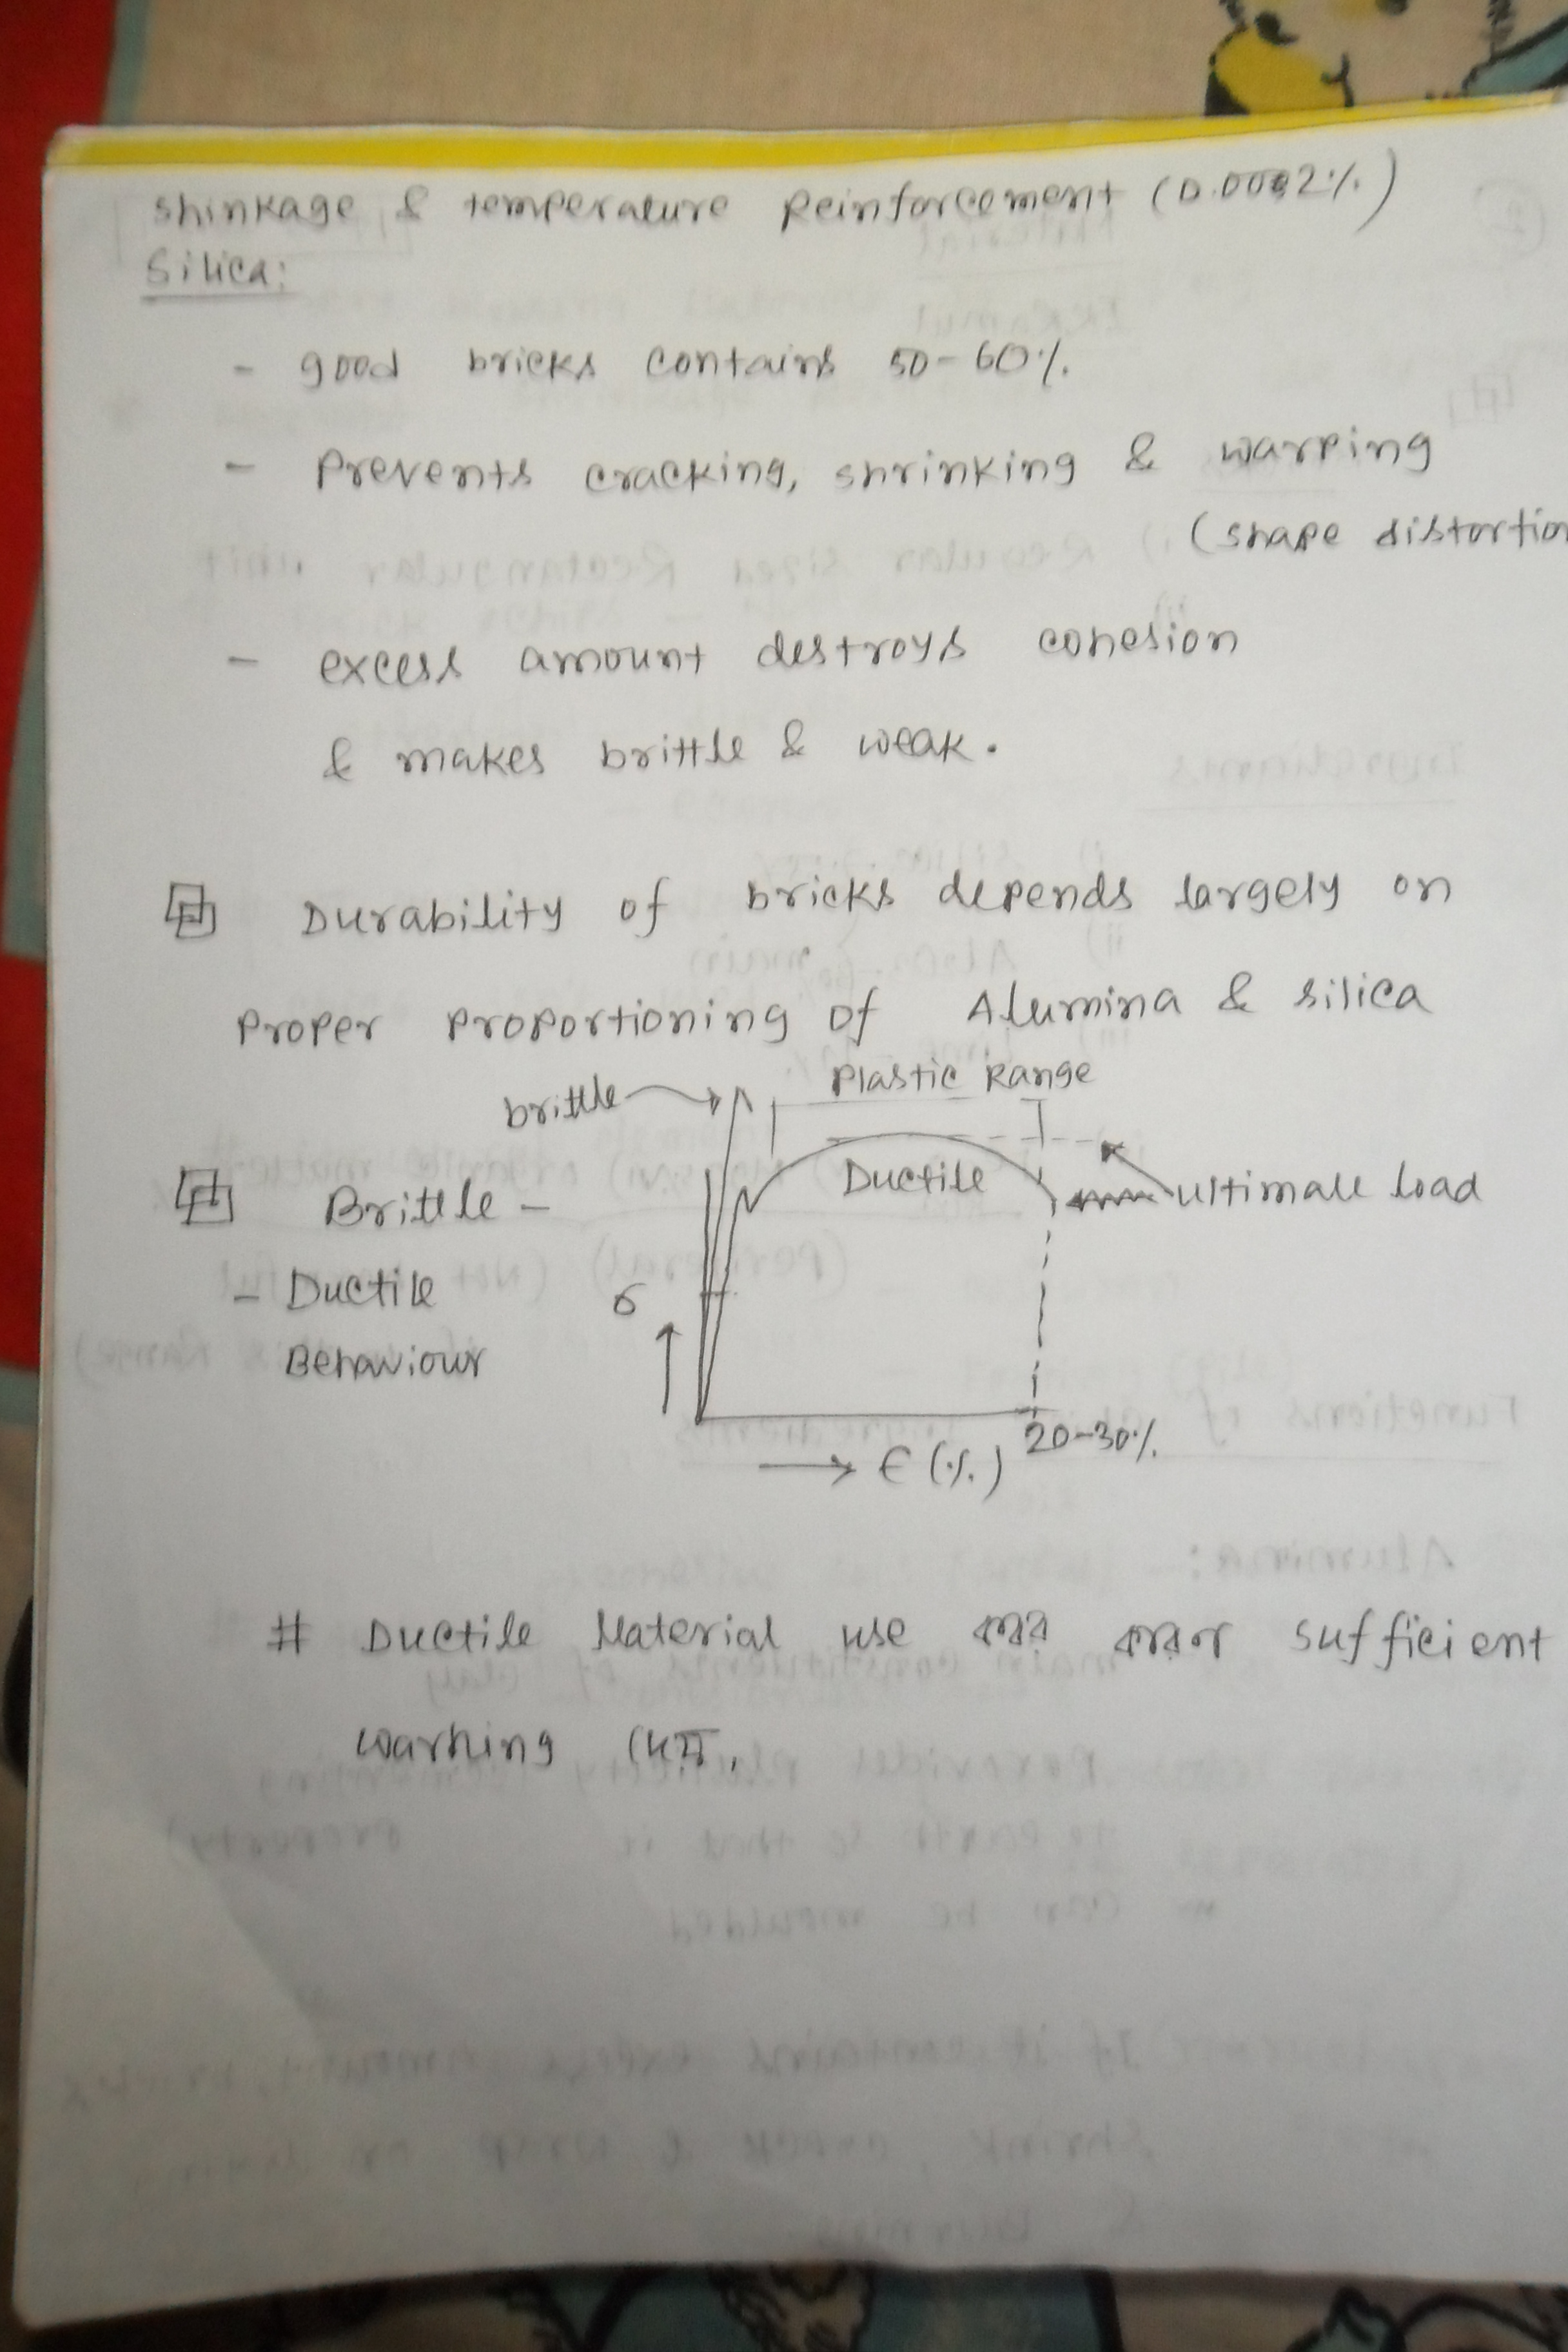 shinkage & temperature Reinforcement (0.0002%)
Silica:
- good bricks contains 50-60%.
- Prevents cracking, shrinking & warping
(shape distortion
- excess amount destroys cohesion
& makes brittle & weak.
Durability of bricks depends largely on
proper proportioning of Alumina & silica
brittle
Plastic Range
Ductile
ultimate load
Brittle -
- Ductile
Behaviour
σ
20-30%
→ ε (%)
# Ductile Material use করা sufficient
warning দেয়,